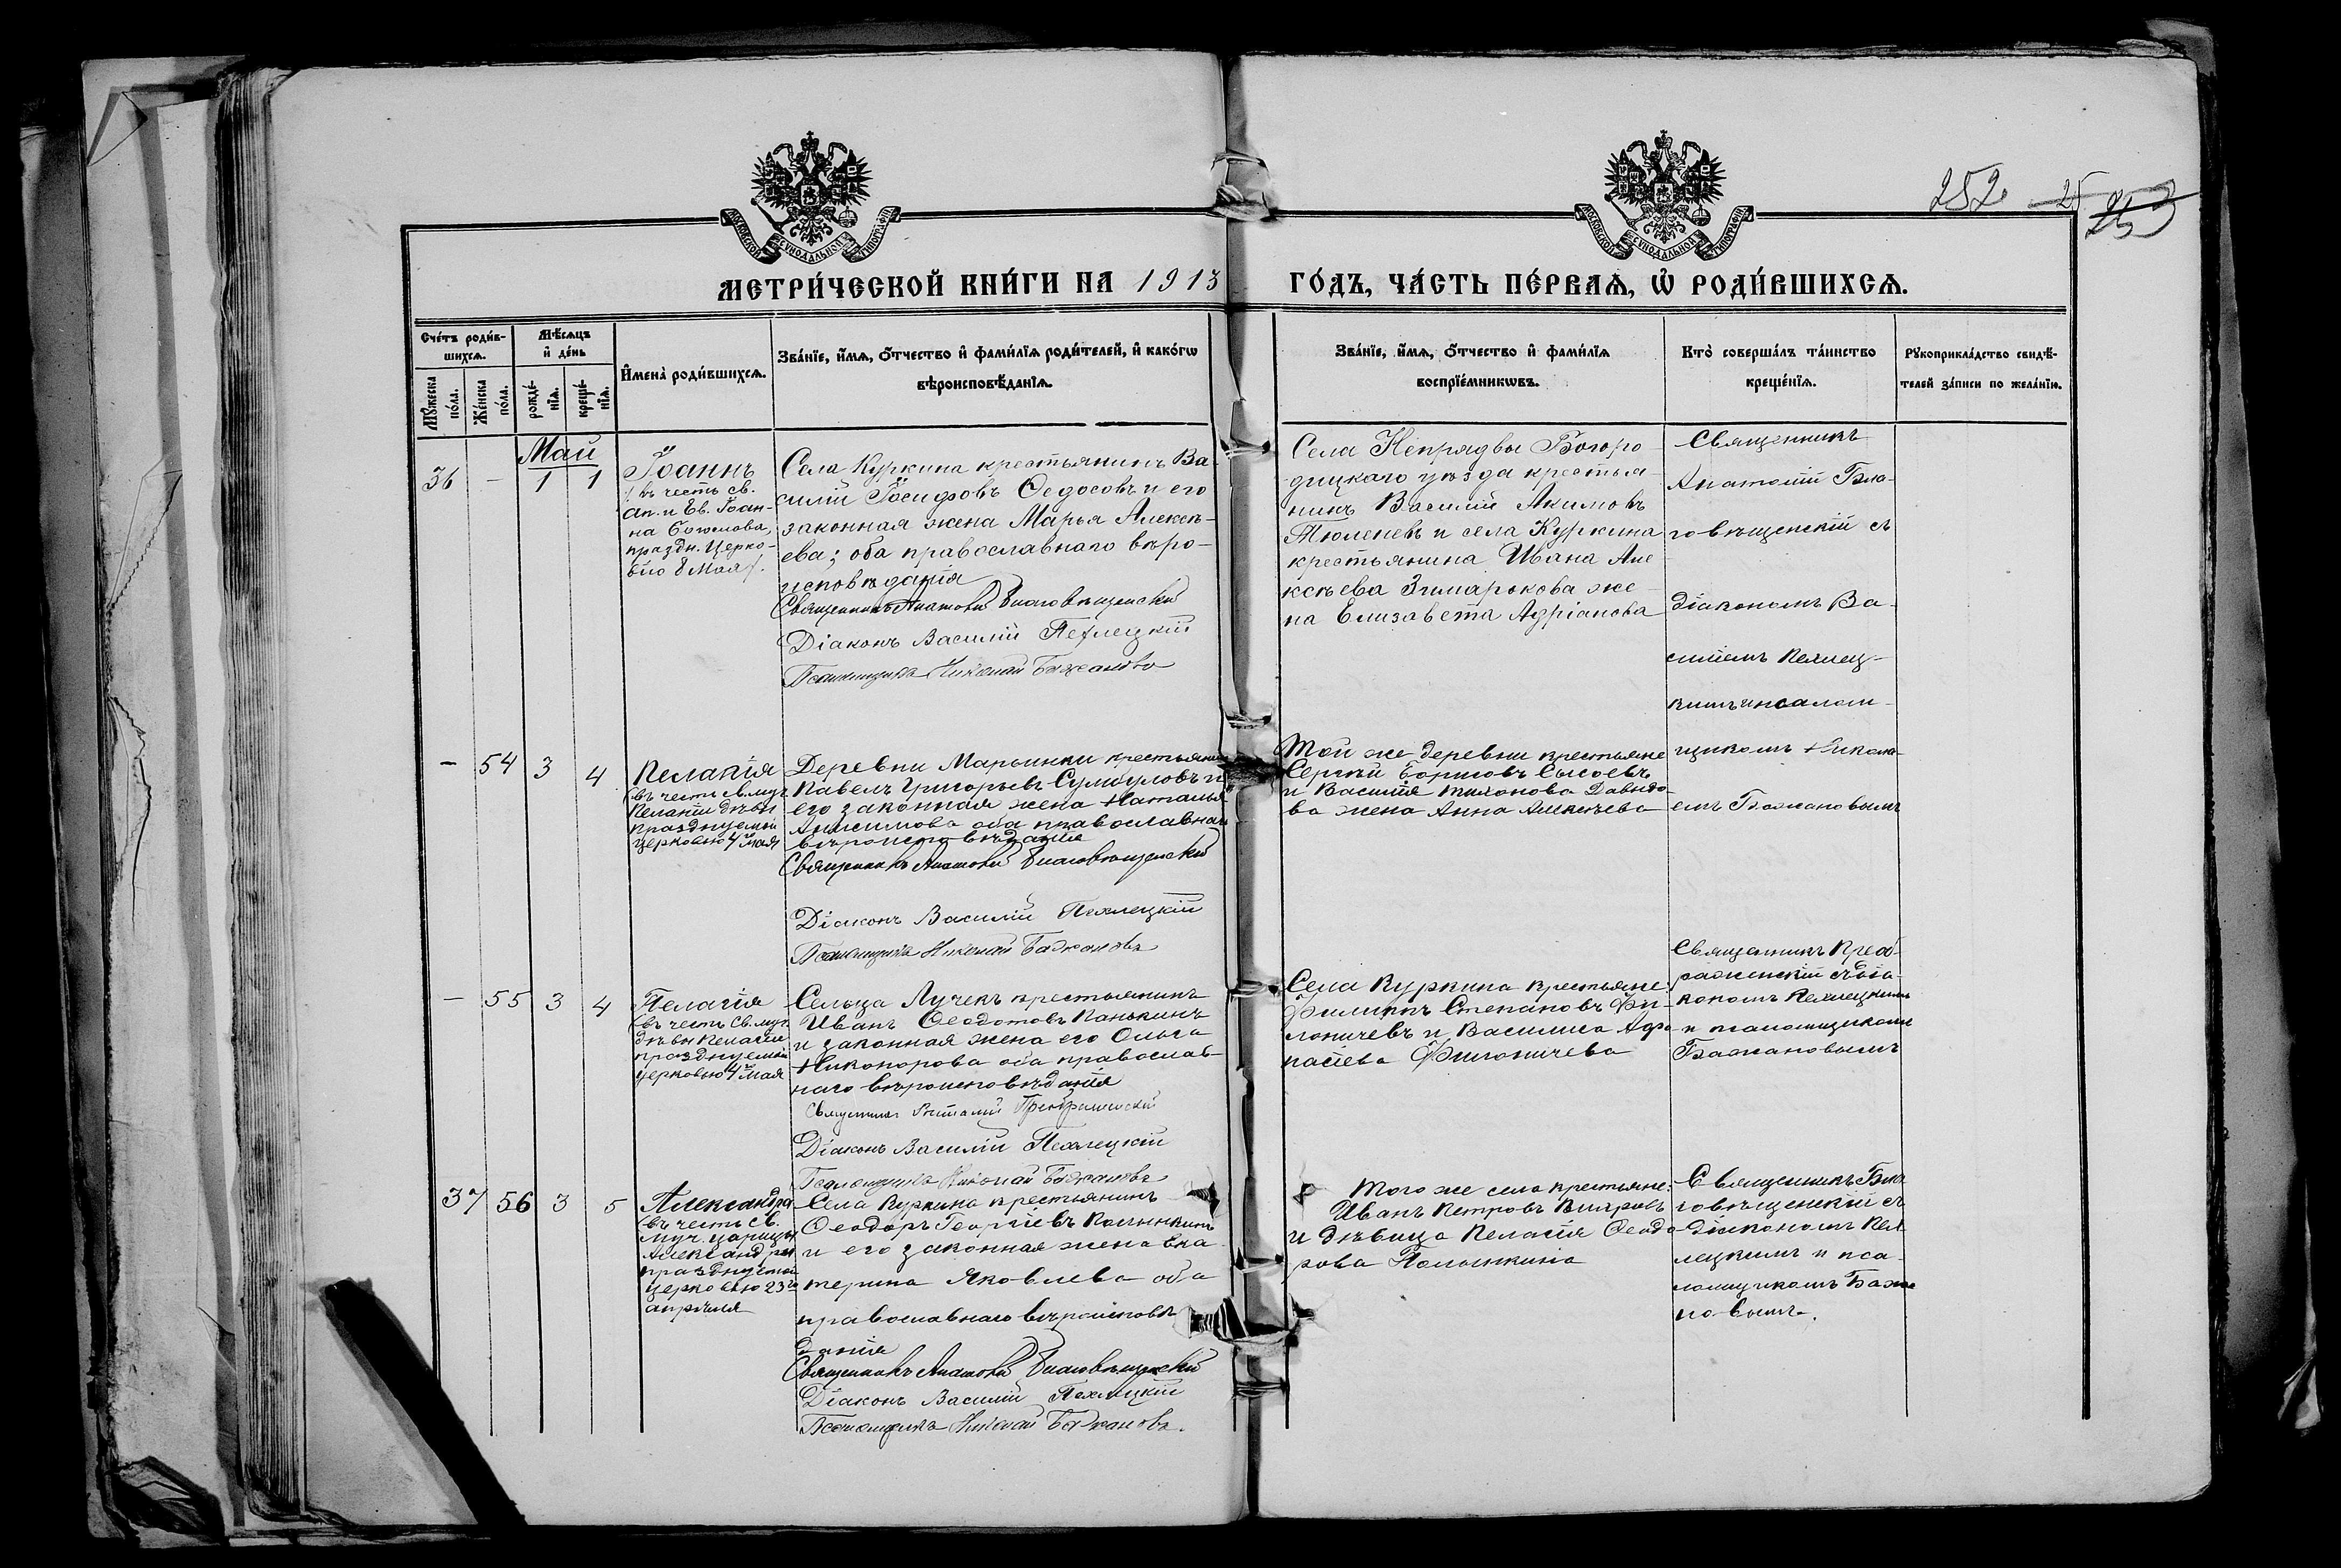 252. 25
МОСКОВСКОЙ СѴНОДАЛЬНОЙ ТИПОГРАФІИ
МОСКОВСКОЙ СѴНОДАЛЬНОЙ ТИПОГРАФІИ
МЕТРИ́ЧЕСКОЙ КНИ́ГИ НА 1913 ГО́ДЪ, ЧА́СТЬ ПЕ́РВАѦ, Ѡ РОДИ́ВШИХСѦ.
Сче́тъ роди́в-
шихсѧ.
Мꙋжеска по́ла.
Же́нска по́ла.
Мѣ́сѧцъ
и҆ де́нь
рожде́-
нїѧ.
креще́-
нїѧ.
И҆мена̀ роди́вшихсѧ.
Зва́нїе, и҆́мѧ, ѻ҆́тчество и҆ фами́лїѧ роди́телей, и҆ како́гѡ
вѣроисповѣ́данїѧ.
Зва́нїе, и҆́мѧ, ѻ҆́тчество и҆ фами́лїѧ
воспрїе́мникѡвъ.
Кто̀ соверша́лъ та́инство
креще́нїѧ.
Рꙋкоприкла́дство свидѣ́-
телей за́писи по жела́нїю.
Май
36 - 1 1
Іоаннъ
(въ честь св.
ап. и Ев. Іоан-
на Богослова,
праздн. Церко-
вію 8 Мая).
Села Куркина крестьянинъ Ва-
силій Іосифовъ Ѳедосовъ и его
законная жена Марья Алексѣ-
ева; оба православнаго вѣро-
исповѣданія
Священникъ Анатолій Благовѣщенскій
Діаконъ Василій Пехлецкій
Псаломщикъ Николай Бажановъ
Села Непрядвы Богоро
дицкаго уѣзда крестья-
нинъ Василій Акимовъ
Тюленевъ и села Куркина
крестьянина Ивана Але
ксѣева Зимарокова же
на Елизавета Адріанова
Священникъ
Анатолій Бла-
говѣщенскій съ
діакономъ Ва-
силіемъ Пехлец-
кимъ и псалом-
щикомъ Никола-
емъ Бажановымъ
- 54 3 4
Пелагія
(въ честь св. муч.
Пелагіи дѣвы
празднуемой
церковью 4 мая
Деревни Марьинки крестьянинъ
Павелъ Григорьевъ Сумбуловъ и
его законная жена Наталья
Анисимова оба православнаго
вѣроисповѣданія
Священникъ Анатолій Благовѣщенскій
Діаконъ Василій Пехлецкій
Псаломщикъ Николай Бажановъ
Той же деревни крестьяне
Сергѣй Борисовъ Сысоевъ
и Василія Тихонова Давыдо-
ва жена Анна Алексѣева
- 55 3 4
Пелагія
(въ честь Св. муч.
дѣвы Пелагіи
празднуемой
церковью 4го Мая
Сельца Лучекъ крестьянинъ
Иванъ Ѳеодотовъ Панькинъ
и законная жена его Ольга
Никонорова оба православ-
наго вѣроисповѣданія
Священникъ Виталій Преображенскій
Діаконъ Василій Пехлецкій
Псаломщикъ Николай Бажановъ
Села Куркина крестьяне:
Филиппъ Степановъ Фи-
лоничевъ и Василиса Афа
насіева Филоничева
Священникъ Преоб-
раженскій съ діа-
кономъ Пехлецкимъ
и псаломщикомъ
Бажановымъ
37 56 3 5
Александра
(въ честь св.
муч. царицы
Александры
празднуемой
церковью 23го
апрѣля
Села Куркина крестьянинъ
Ѳеодоръ Георгіевъ Полынкинъ
и его законная жена Ека
терина Яковлева оба
православнаго вѣроисповѣ
данія
Священникъ Анатолій Благовѣщенскій
Діаконъ Василій Пехлецкій
Псаломщикъ Николай Бажановъ.
Того же села крестьяне:
Иванъ Петровъ
и дѣвица Пелагія Ѳеодо-
рова Полынкина
Священникъ Бла
говѣщенскій съ
діакономъ Пех
лецкимъ и пса-
ломщикомъ Бажа
новымъ.